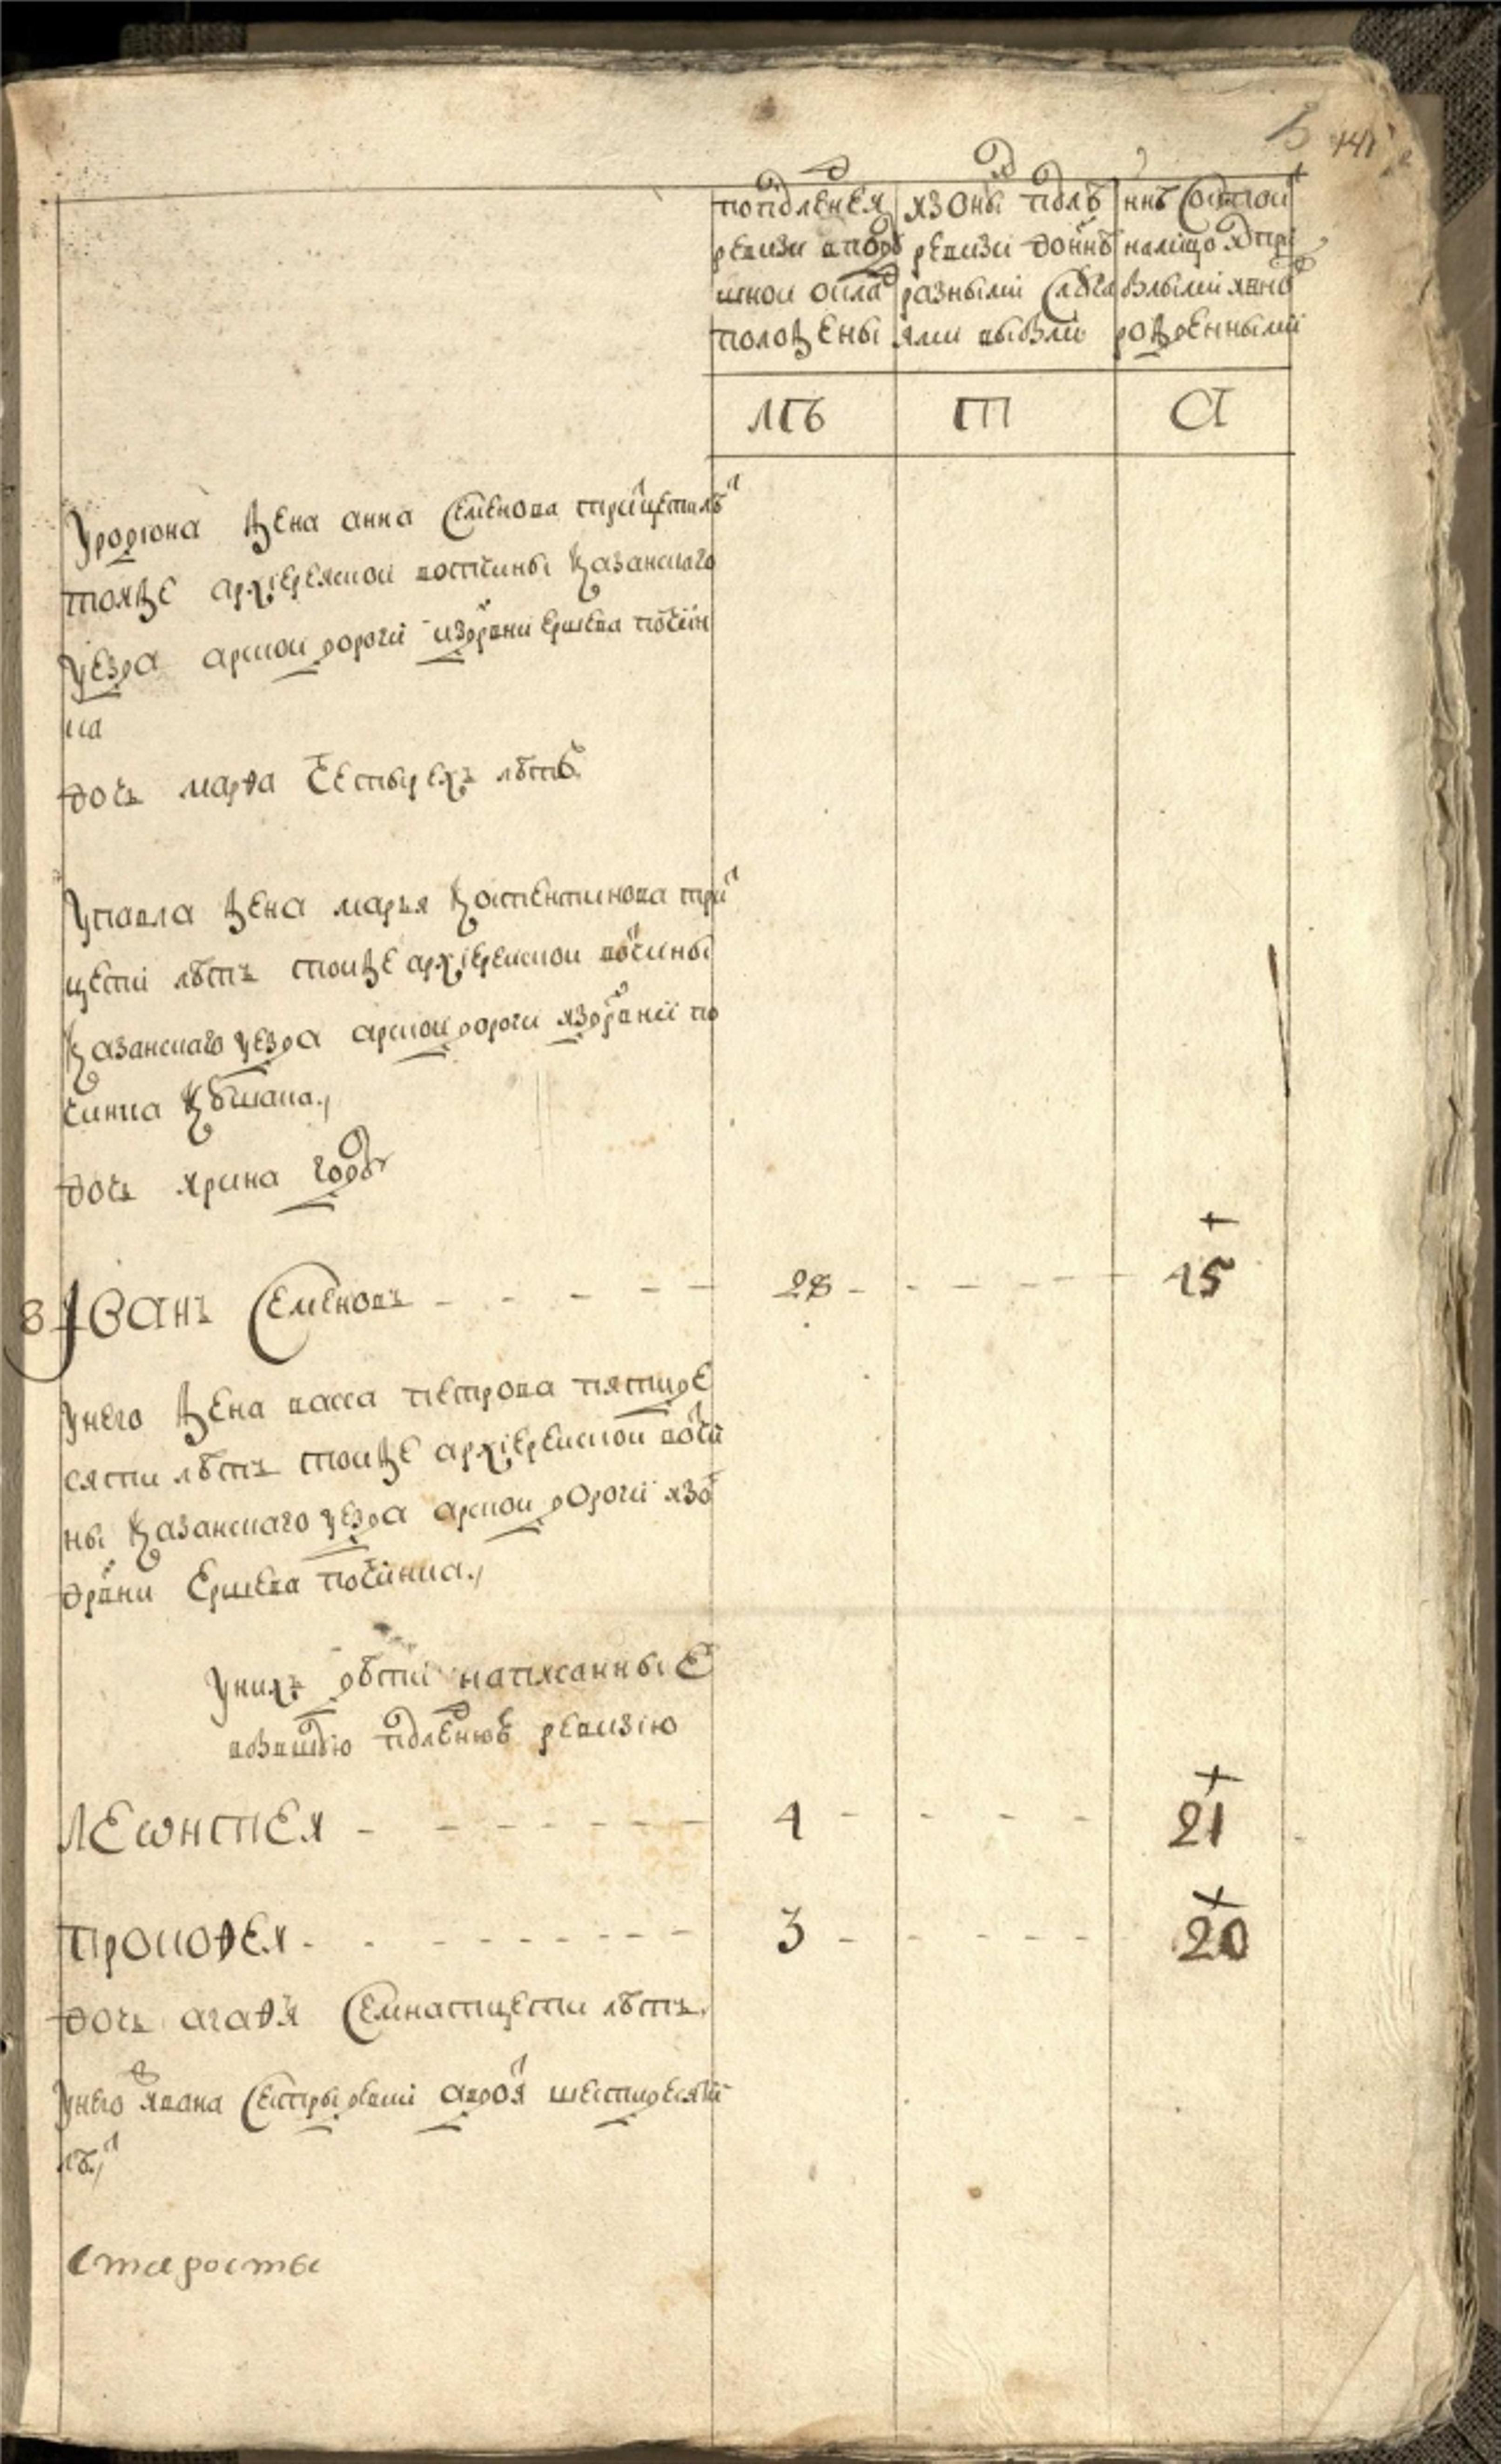 141
попбдленея
ревизи вподу
шной окла
положены
язоны подлѣ
ревизи доннѣ
разными случа
ями выбыли
ннѣ состои
налицо
былыми явно
рожденными
лѣ
Уродиона жена анна Семенова трицети лѣ
тояже архиерейской вотчины казанского
уезда арской дороги издрвни Ершева почин
ка
дочь марѳа Четырехъ лѣтъ
Упавла жена марья костентинова три
цети лѣтъ тоиже архиерейской вотчины
казанскаго уезда арской дороги издрвни по
чинка
дочь ярина году
8 Иванъ Семеновъ - - - - - 28 - - - - - 45
Унего жена васса петрова пятиде
сяти лѣтъ тоиже архиерейской вотчи
ны казанскаго уезда арской дороги изо
дрвни Ершева починка
Унихъ дѣти написанные
вбывшую подленюю ревизию
Леѡнтей - - - - - - - 4 - - - - 21
Прокоѳей - - - - - - - 3 - - - - 20
дочь агаѳя Семнатцети лѣтъ
Унего ивана Сестры девки авдоя шестидесяти
лѣ
Старосты